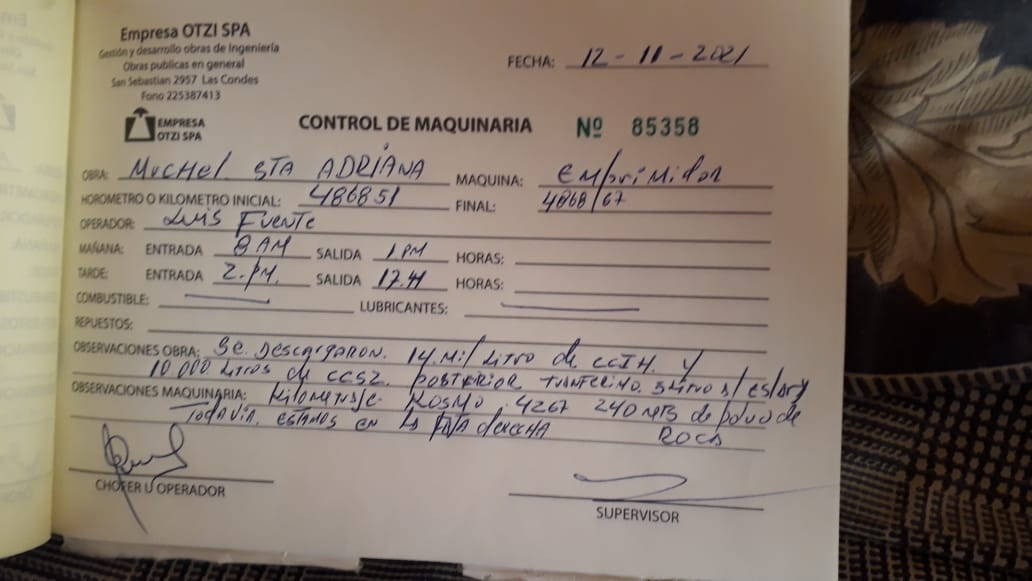 Empresa OTZI SPA
Gestión y desarrollo obras de Ingeniería
Obras publicas en general
San Sebastian 2957 Las Condes
Fono 225387413
FECHA: 12-11-2021
EMPRESA OTZI SPA
CONTROL DE MAQUINARIA Nº 85358
OBRA: MUCHEL STA ADRIANA MAQUINA: EMPriMidor
HOROMETRO O KILOMETRO INICIAL: 486851 FINAL: 4868/67
OPERADOR: Luis Fuente
MAÑANA: ENTRADA 8 AM SALIDA 1 PM HORAS:
TARDE: ENTRADA 2.PM. SALIDA 17.H HORAS:
COMBUSTIBLE: LUBRICANTES:
REPUESTOS:
OBSERVACIONES OBRA: Se Descargaron. 14 Mil Litro de y
10 000 Litros de POSTERIOR
OBSERVACIONES MAQUINARIA: Kilometraje 4267 240 MTS de polvo de
Todavia. estamos en la derecha ROCA
CHOFER U OPERADOR
SUPERVISOR